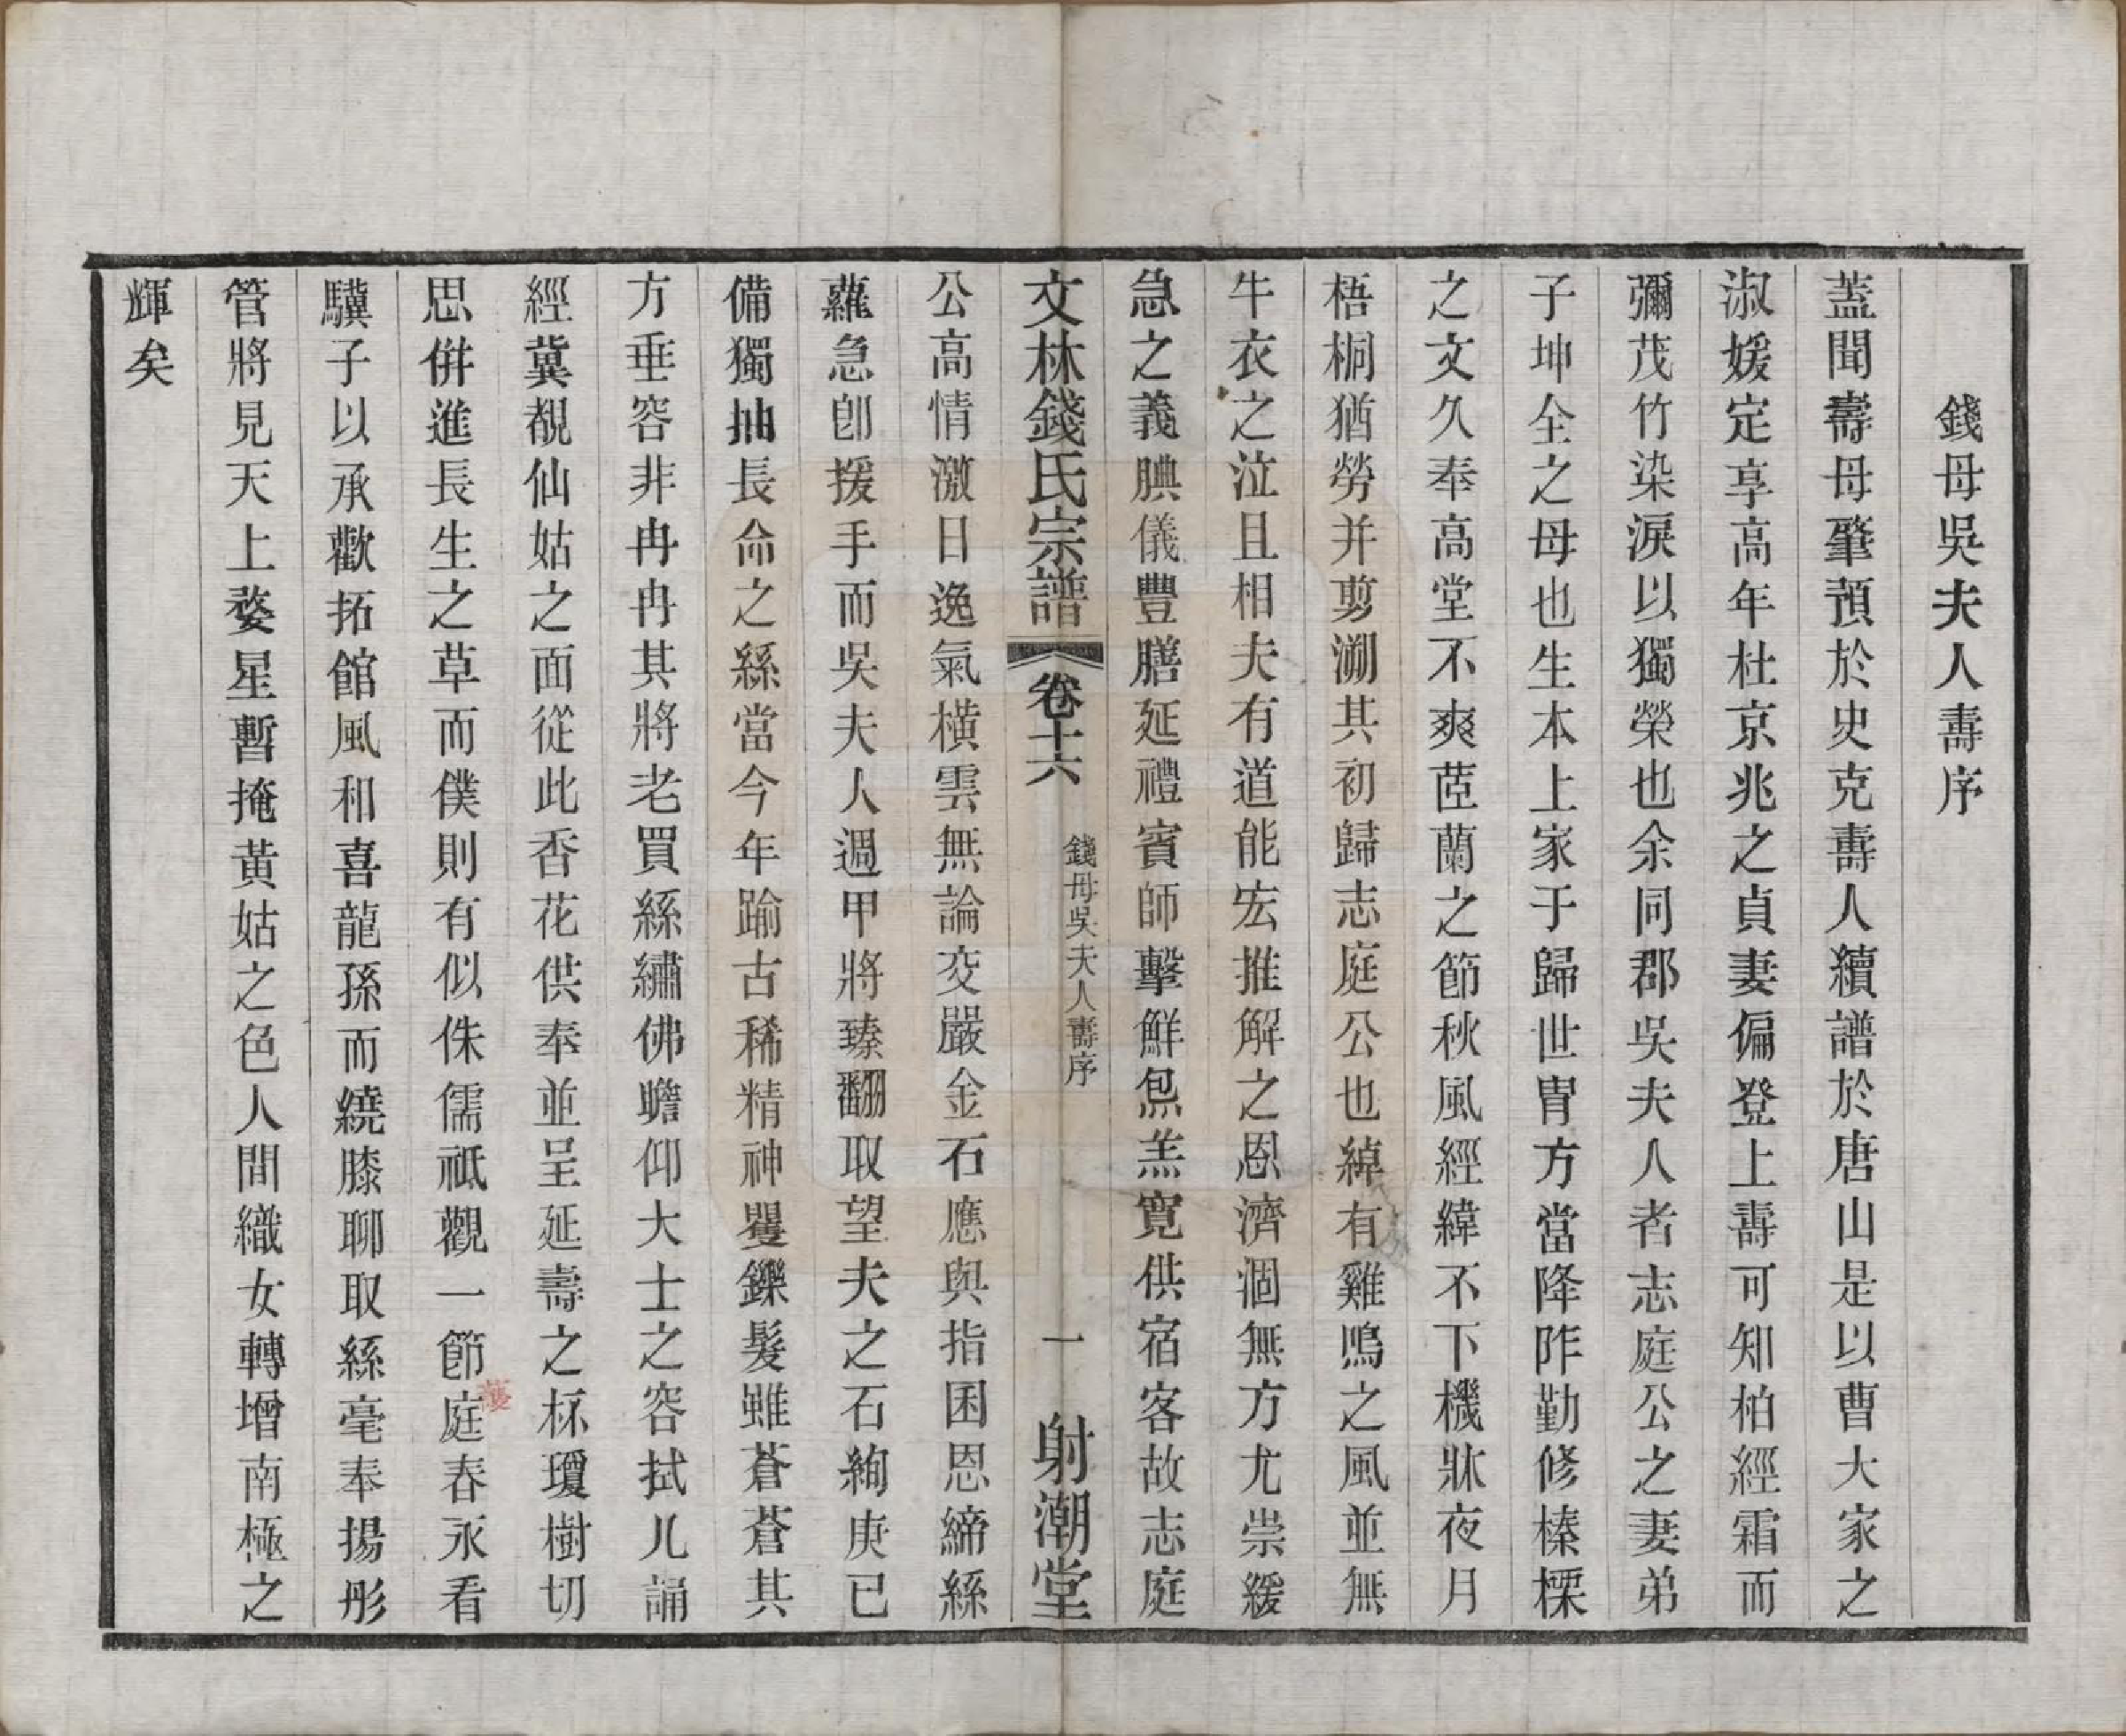 錢母吳夫人壽序
蓋聞壽母肇預於史克壽人續譜於唐山是以曹大家之
淑媛定享高年杜京兆之貞妻偏登上壽可知柏經霜而
彌茂竹染淚以獨榮也余同郡吳夫人者志庭公之妻弟
子坤全之母也生本上家于歸世胄方當降阼勤修榛栗
之文久奉高堂不爽茝蘭之節秋風經緯不下機牀夜月
梧桐猶勞并剪溯其初歸志庭公也綽有雞鳴之風並無
牛衣之泣且相夫有道能宏推解之恩濟涸無方尤崇緩
急之義腆儀豐膳延禮賓師擊鮮炰羔寬供宿客故志庭
文林錢氏宗譜 卷十六 錢母吳夫人壽序 一 射潮堂
公高情激日逸氣橫雲無論交嚴金石應與指囷恩締絲
蘿急卽援手而吳夫人週甲將臻翻取望夫之石絢庚已
備獨抽長命之絲當今年踰古稀精神矍鑠髮雖蒼蒼其
方垂容非冉冉其將老買絲繡佛瞻仰大士之容拭几誦
經冀覩仙姑之面從此香花供奉並呈延壽之杯瓊樹切
思倂進長生之草而僕則有似侏儒祗觀一節庭春永看
萲
驥子以承歡拓館風和喜龍孫而繞膝聊取絲毫奉揚彤
管將見天上婺星暫掩黃姑之色人間織女轉增南極之
輝矣